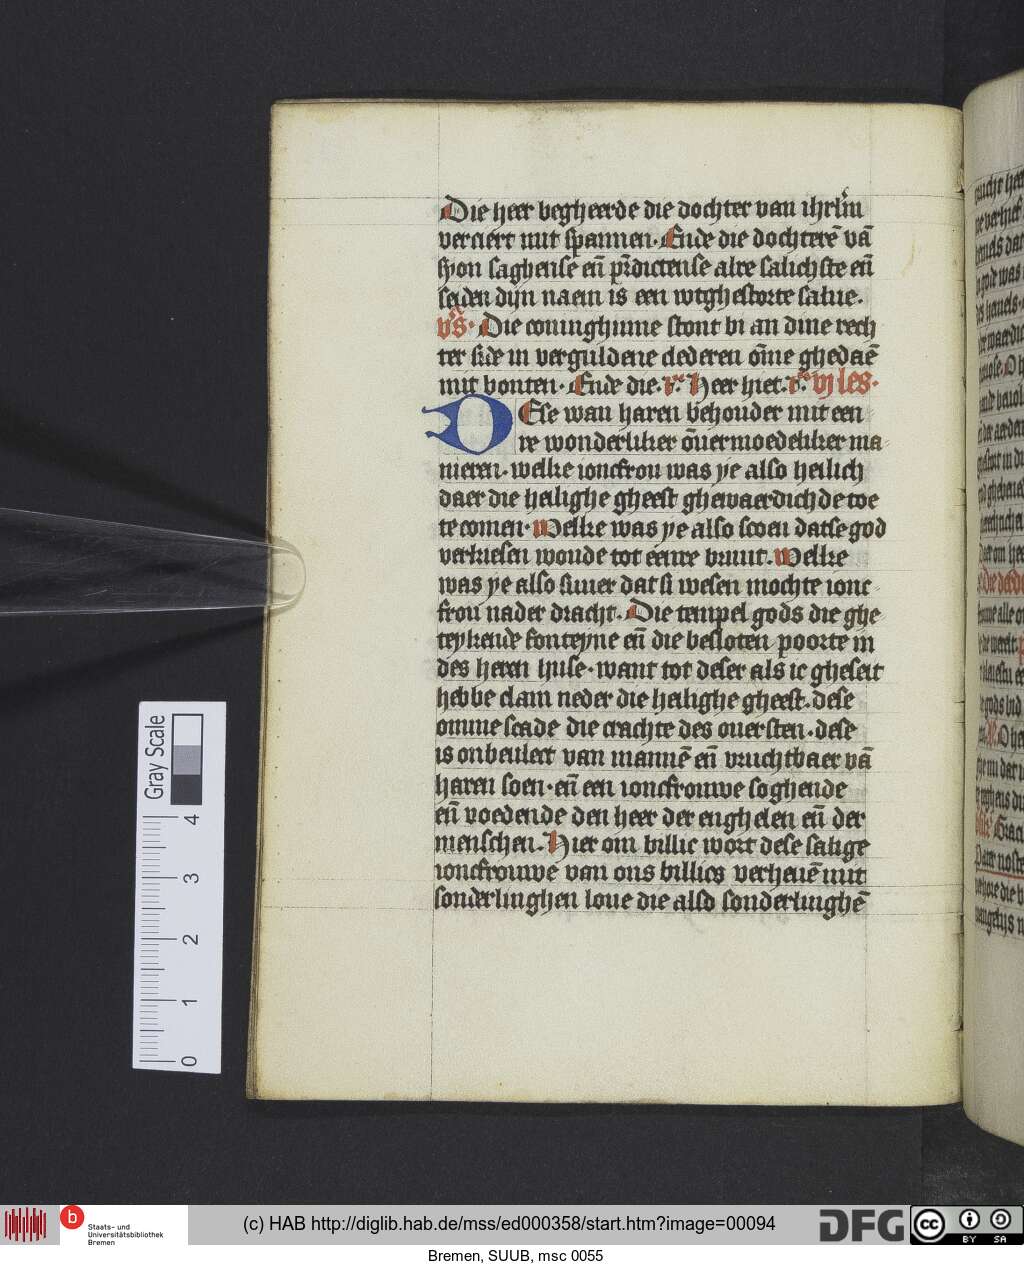 Die heer begheerde die dochter van ihrl̄m
verciert mit spannen. Ende die dochterē vā
syon saghense eñ p̄dictense alre salichste eñ
seiden dijn naem is een wtghestorte salue.
vs̄. Die coninghinne stont bi an dine rech
ter side in verguldene clederen om̄e ghedaē
mit bonten. Ende die. r̄. Heer hiet. r̄. vj les.
DEse wan haren behouder mit een
re wonderliker ōuermoedeliker ma
nieren. welke ioncfrou was ye also heilich
daer die heilighe gheest ghewaerdichde toe
te comen. Welke was ye also scoen datse god
verkiesen woude tot eenre bruut. Welke
was ye also suuer dat si wesen mochte ionc
frou nader dracht. Die tempel gods die ghe
teykende fonteyne eñ die besloten poorte in
des heren huse. want tot deser als ic gheseit
hebbe clam neder die heilighe gheest. dese
omme scade die crachte des ouersten. dese
is onbeulect van mannē eñ vruchtbaer vā
haren soen. eñ een ioncfrouwe soghende
eñ voedende den heer der enghelen eñ der
menschen. Hier om billic wort dese salige
ioncfrouwe van ons billics verheuē mit
sonderlinghen loue die also sonderlinghē
Gray Scale
0 1 2 3 4
Staats- und
Universitätsbibliothek
Bremen
(c) HAB http://diglib.hab.de/mss/ed000358/start.htm?image=00094
DFG
cc BY SA
Bremen, SUUB, msc 0055